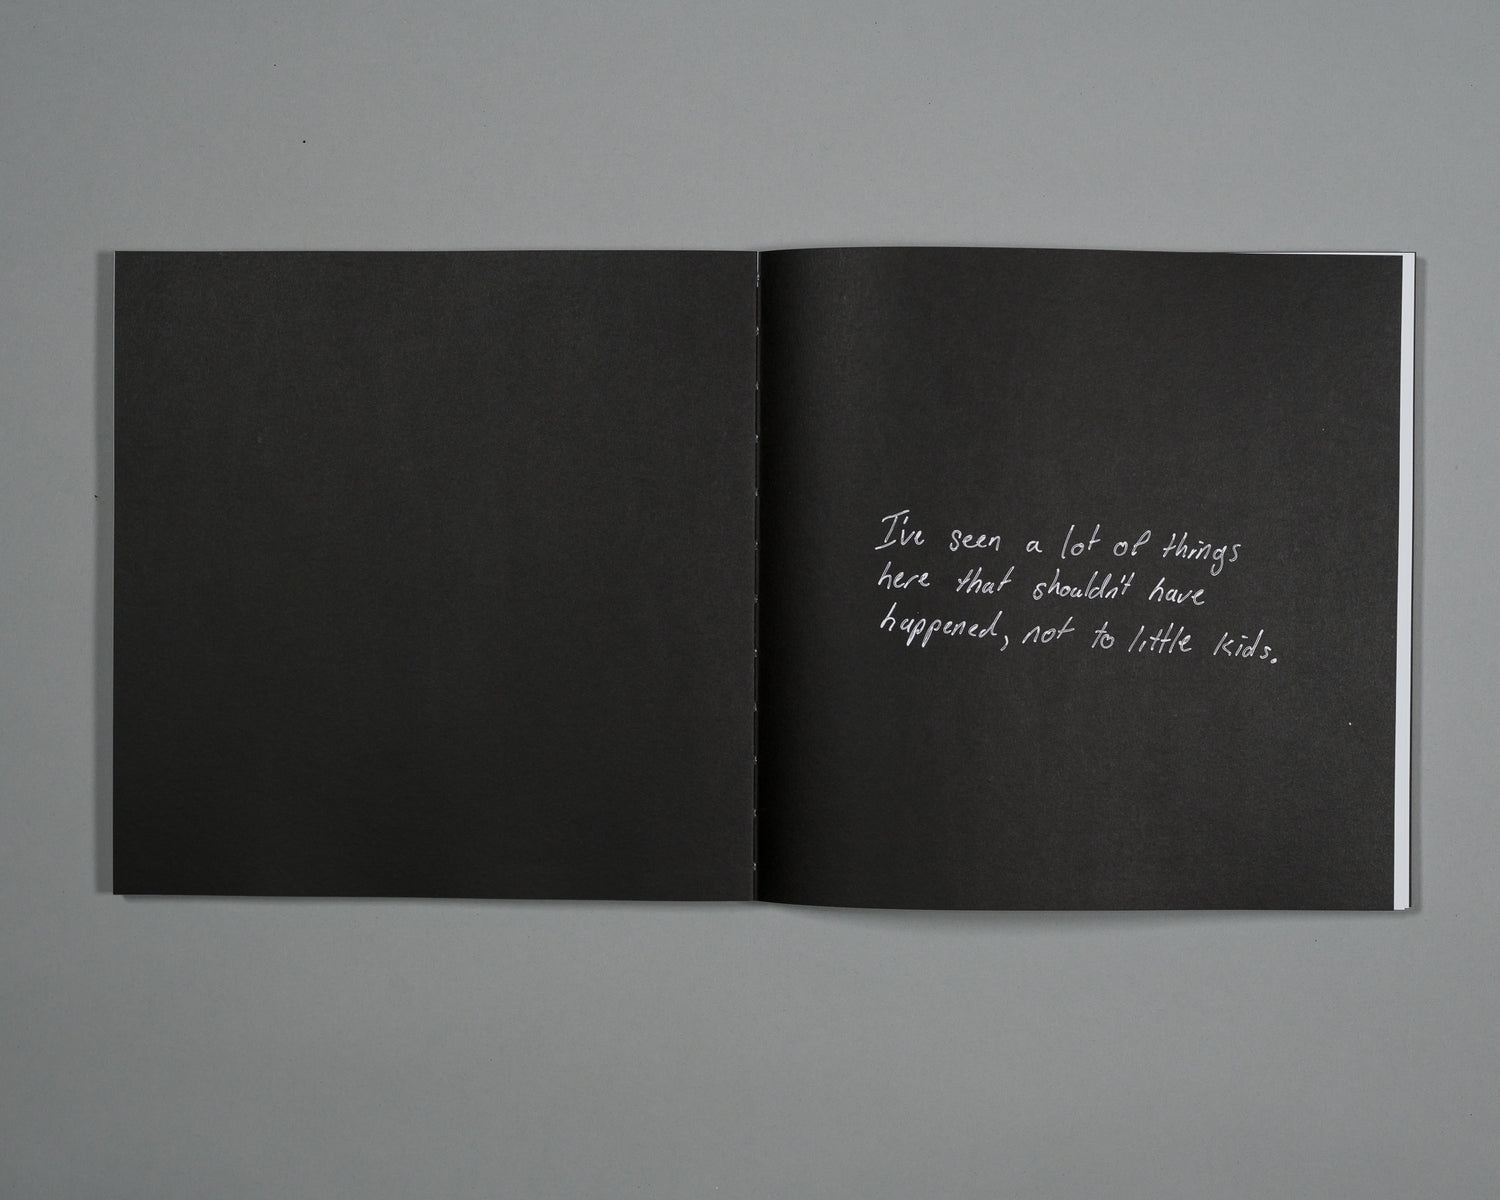 I've seen a lot of things
here that shouldn't have
happened, not to little kids.